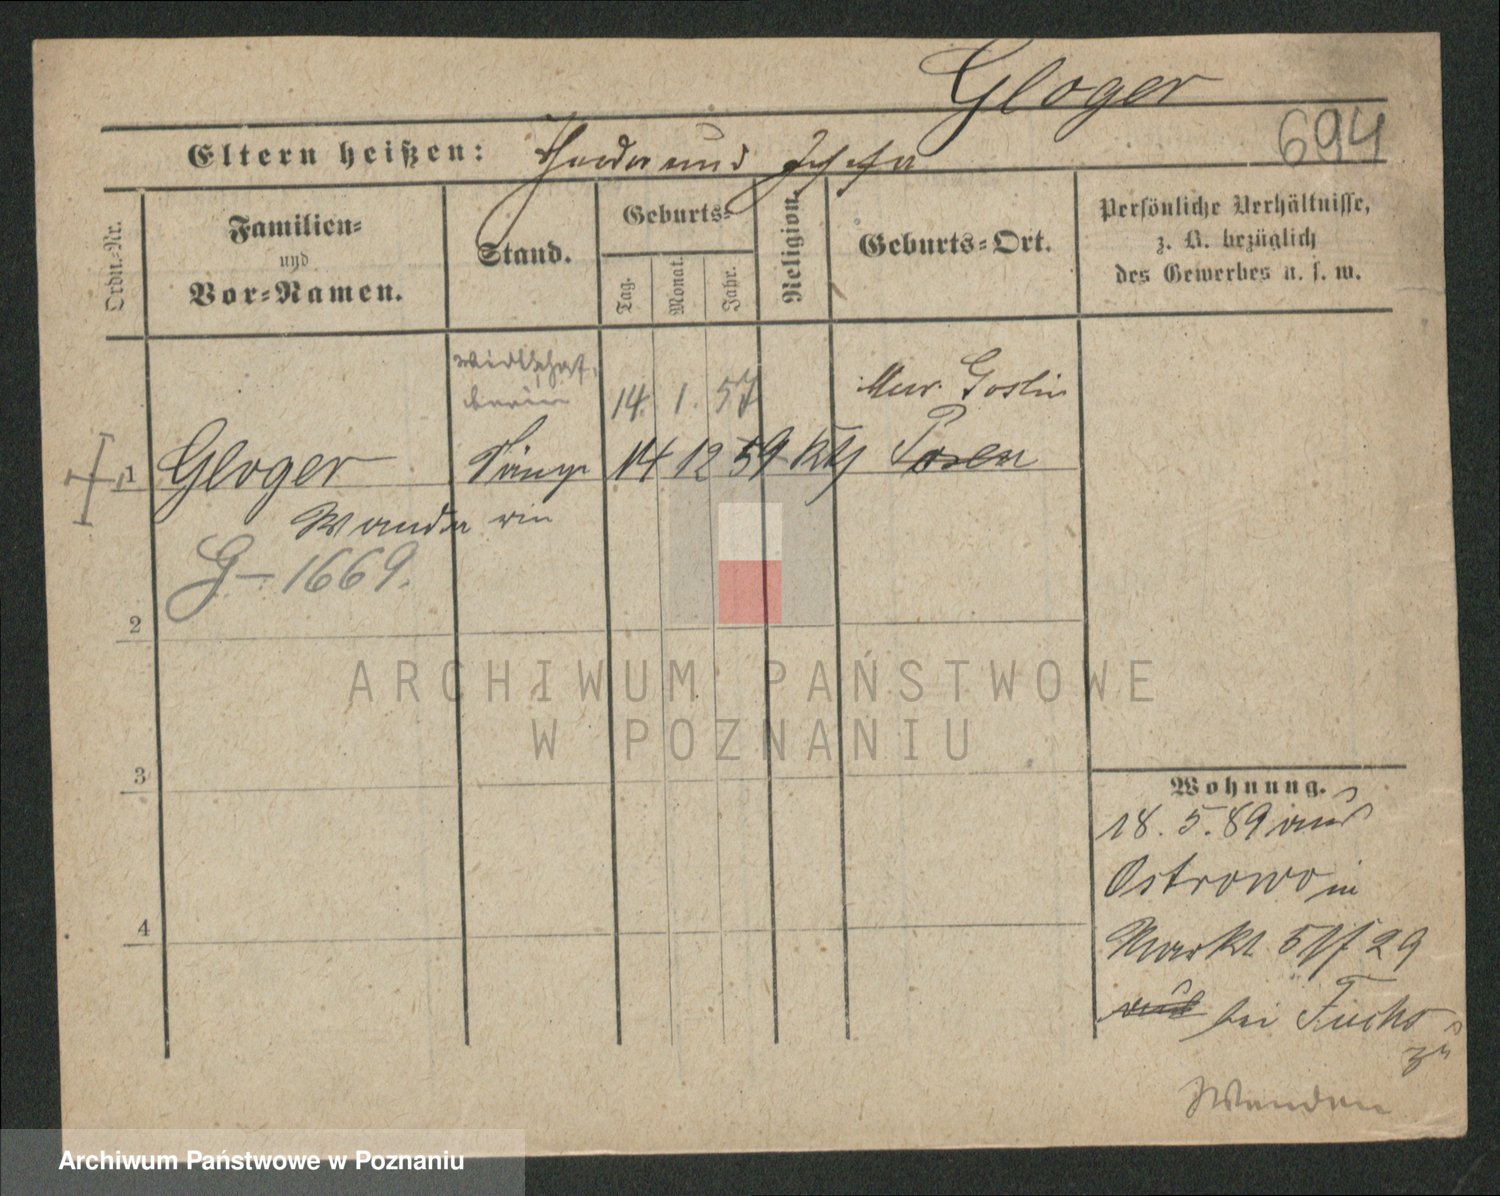 Gloger
694
Eltern heißen: Theodor und Josefa
Ordn.-Nr.
Familien-
und
Vor-Namen.
Stand.
Geburts-
Tag.
Monat.
Jahr.
Religion.
Geburts-Ort.
Persönliche Verhältnisse,
z. B. bezüglich
des Gewerbes u. s. w.
Wirthschaf-
terin
14. 1. 57
Mur. Goslin
1 Gloger 14 12 59 kth Posen
Wanda rin
G-1669.
2
3
4
ARCHIWUM PAŃSTWOWE
W POZNANIU
Wohnung.
18. 5. 89 aus
Ostrowo in
Markt 29
bei Fuchs
zu
Archiwum Państwowe w Poznaniu